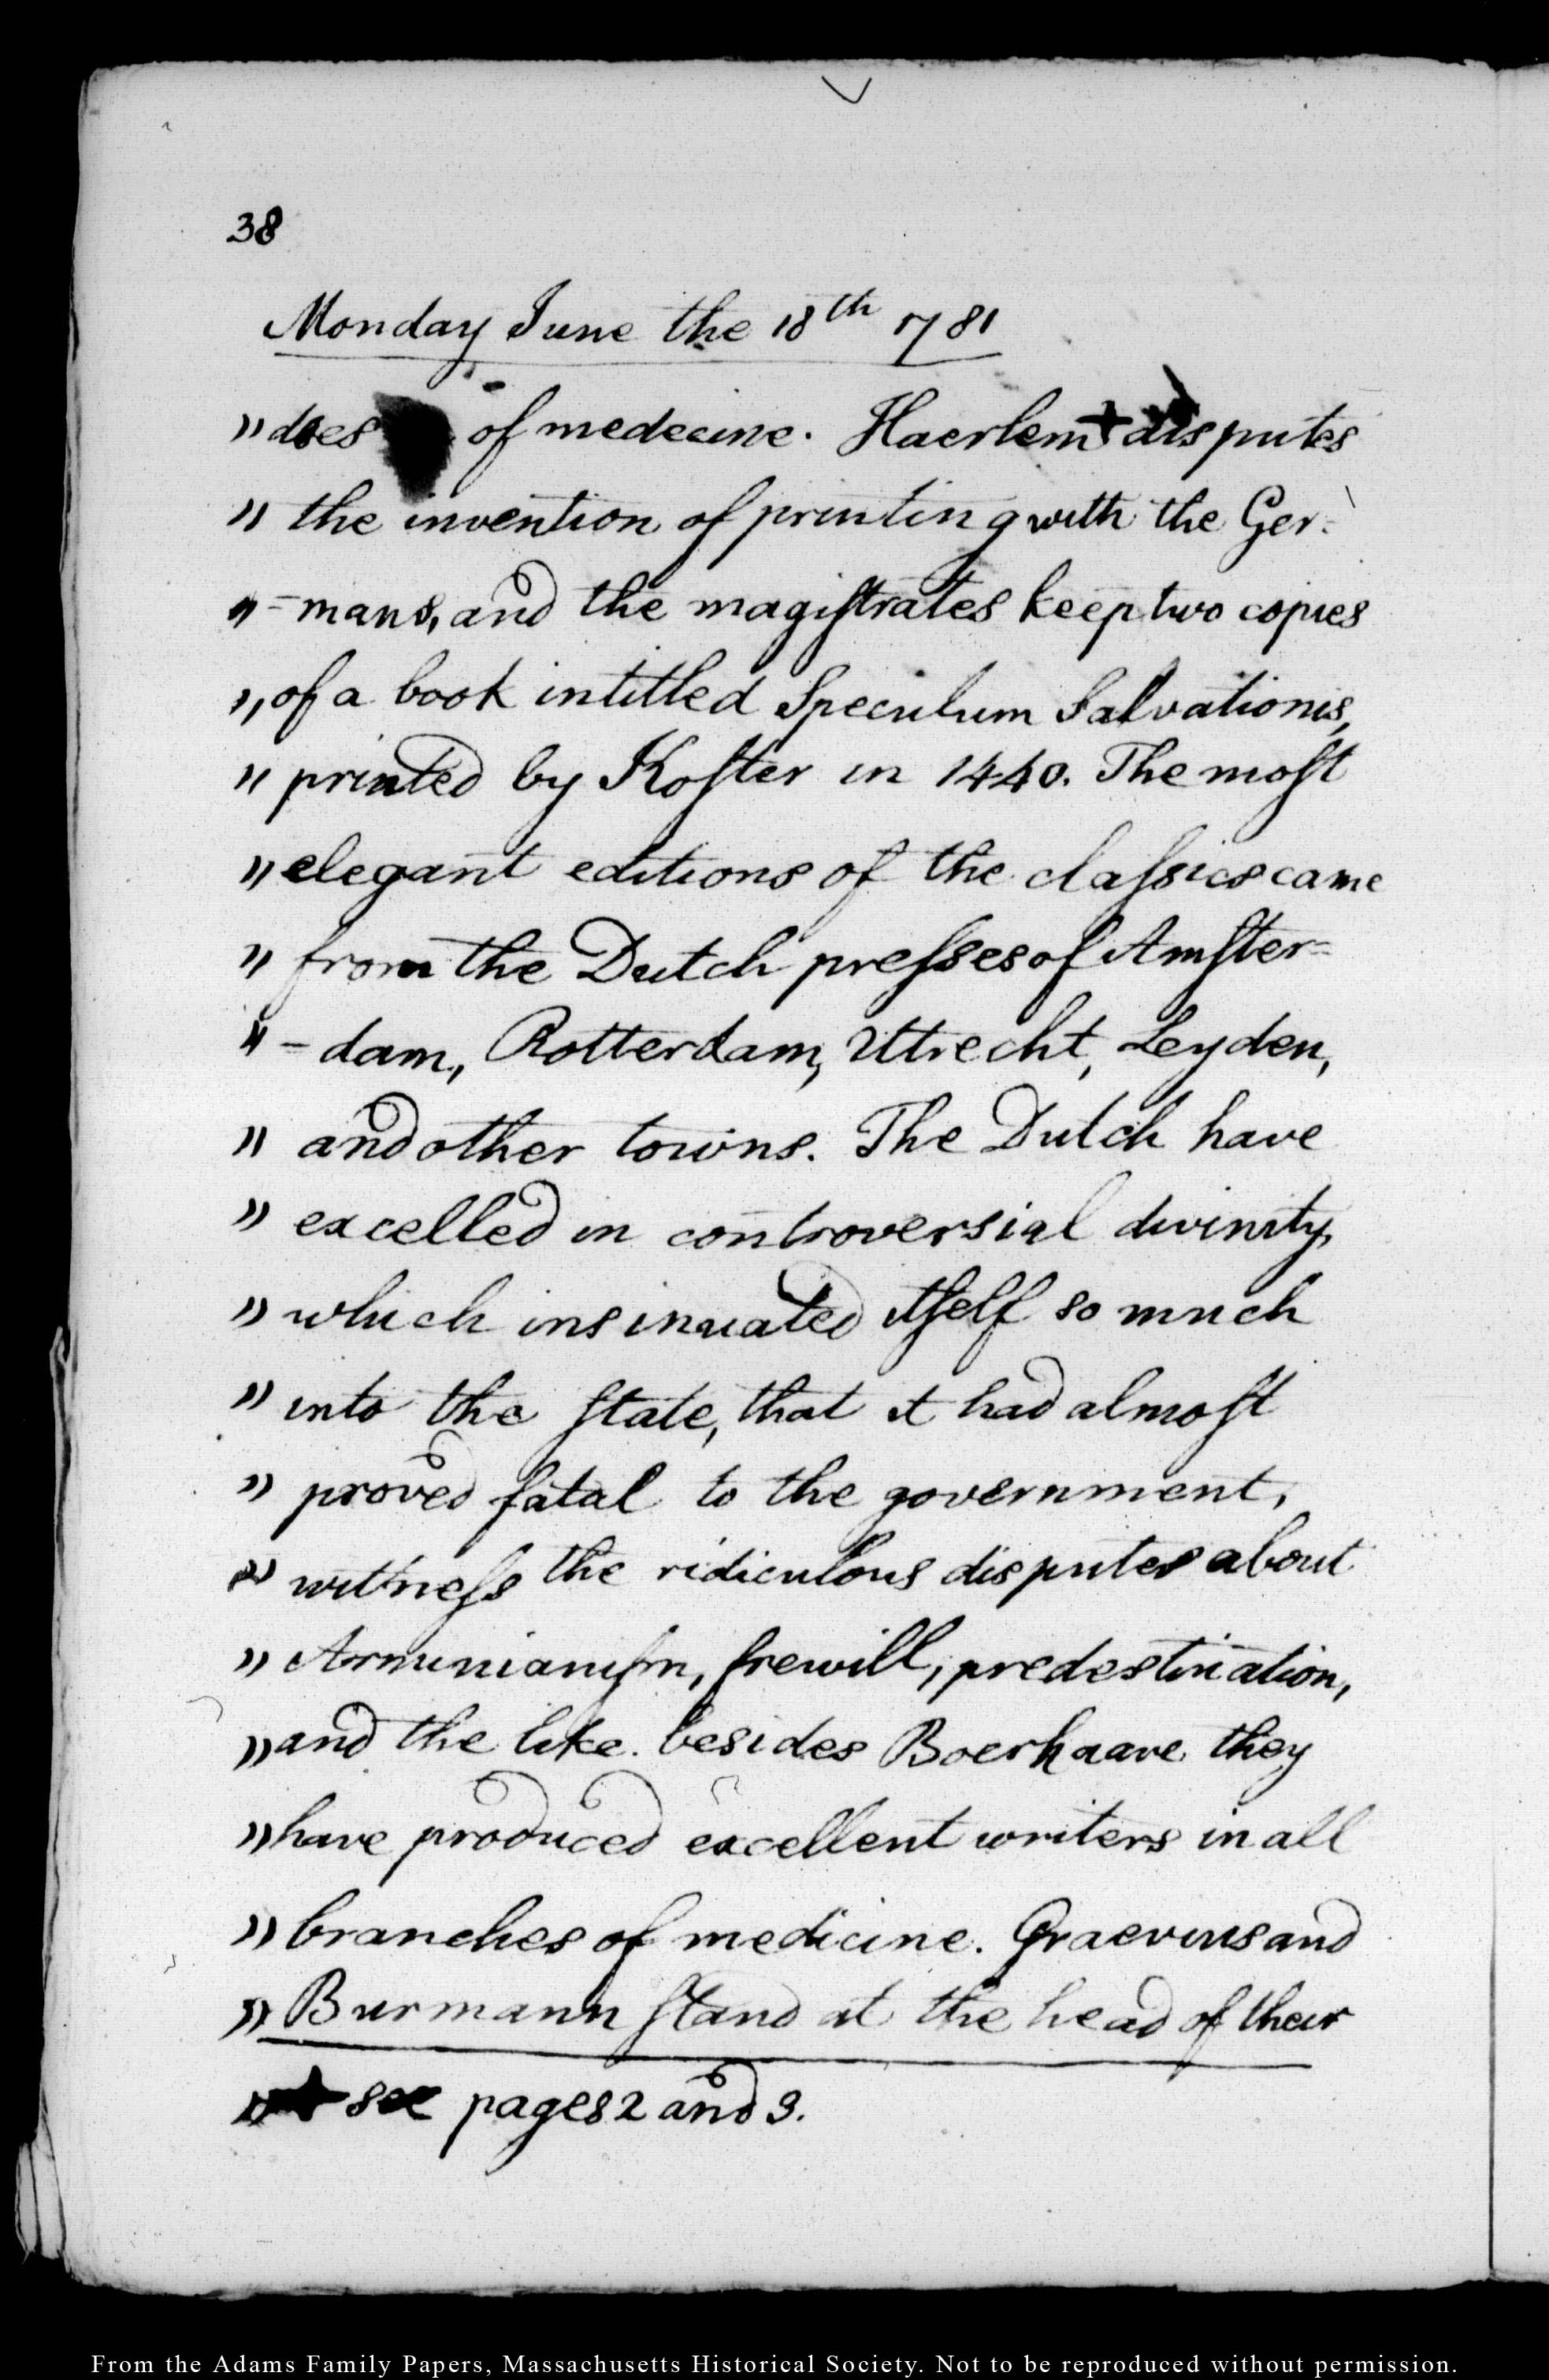 38
Monday June the 18th 1781
" does of medecine. Haerlem + disputes
" the invention of printing with the Ger=
" =mans, and the magiſtrates keep two copies
" of a book intitled Speculum Salvationis,
" printed by Koſter in 1440. The moſt
" elegant editions of the claſsics came
" from the Dutch preſses of Amſter=
" =dam, Rotterdam, Uttrecht, Leyden,
" and other towns. The Dutch have
" excelled in controversial divinity,
" which insinuated itſelf so much
" into the ſtate, that it had almoſt
" proved fatal to the government,
" wittneſs the ridiculous disputes about
" Arminianiſm, frewill, predestination,
" and the like. besides Boerhaave they
" have produced excellent writers in all
" branches of medicine. Graevius and
" Burmann ſtand at the head of their
" + see pages 2 and 3.
From the Adams Family Papers, Massachusetts Historical Society. Not to be reproduced without permission.